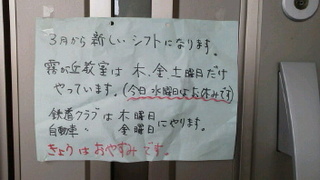 3月から新しいシフトになります。
霧が丘教室は木、金土曜日だけ
やっています。(今日水曜日はお休みです)
鉄道クラブは木曜日
自動車 〃 金曜日にやります。
きょうはおやすみです。